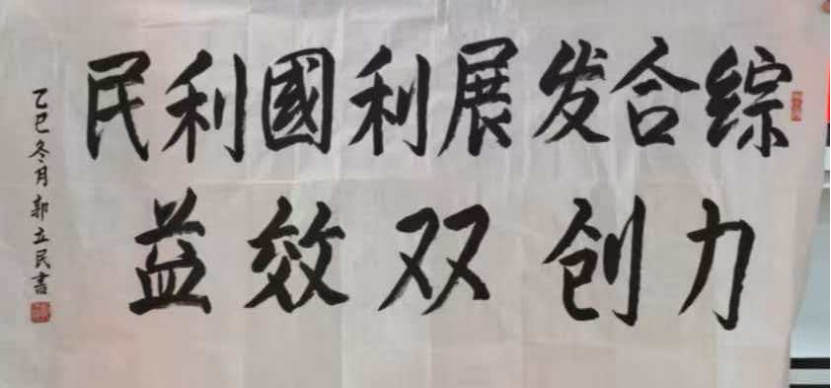 综合发展利國利民
力创双效益
乙巳冬月郭立民書